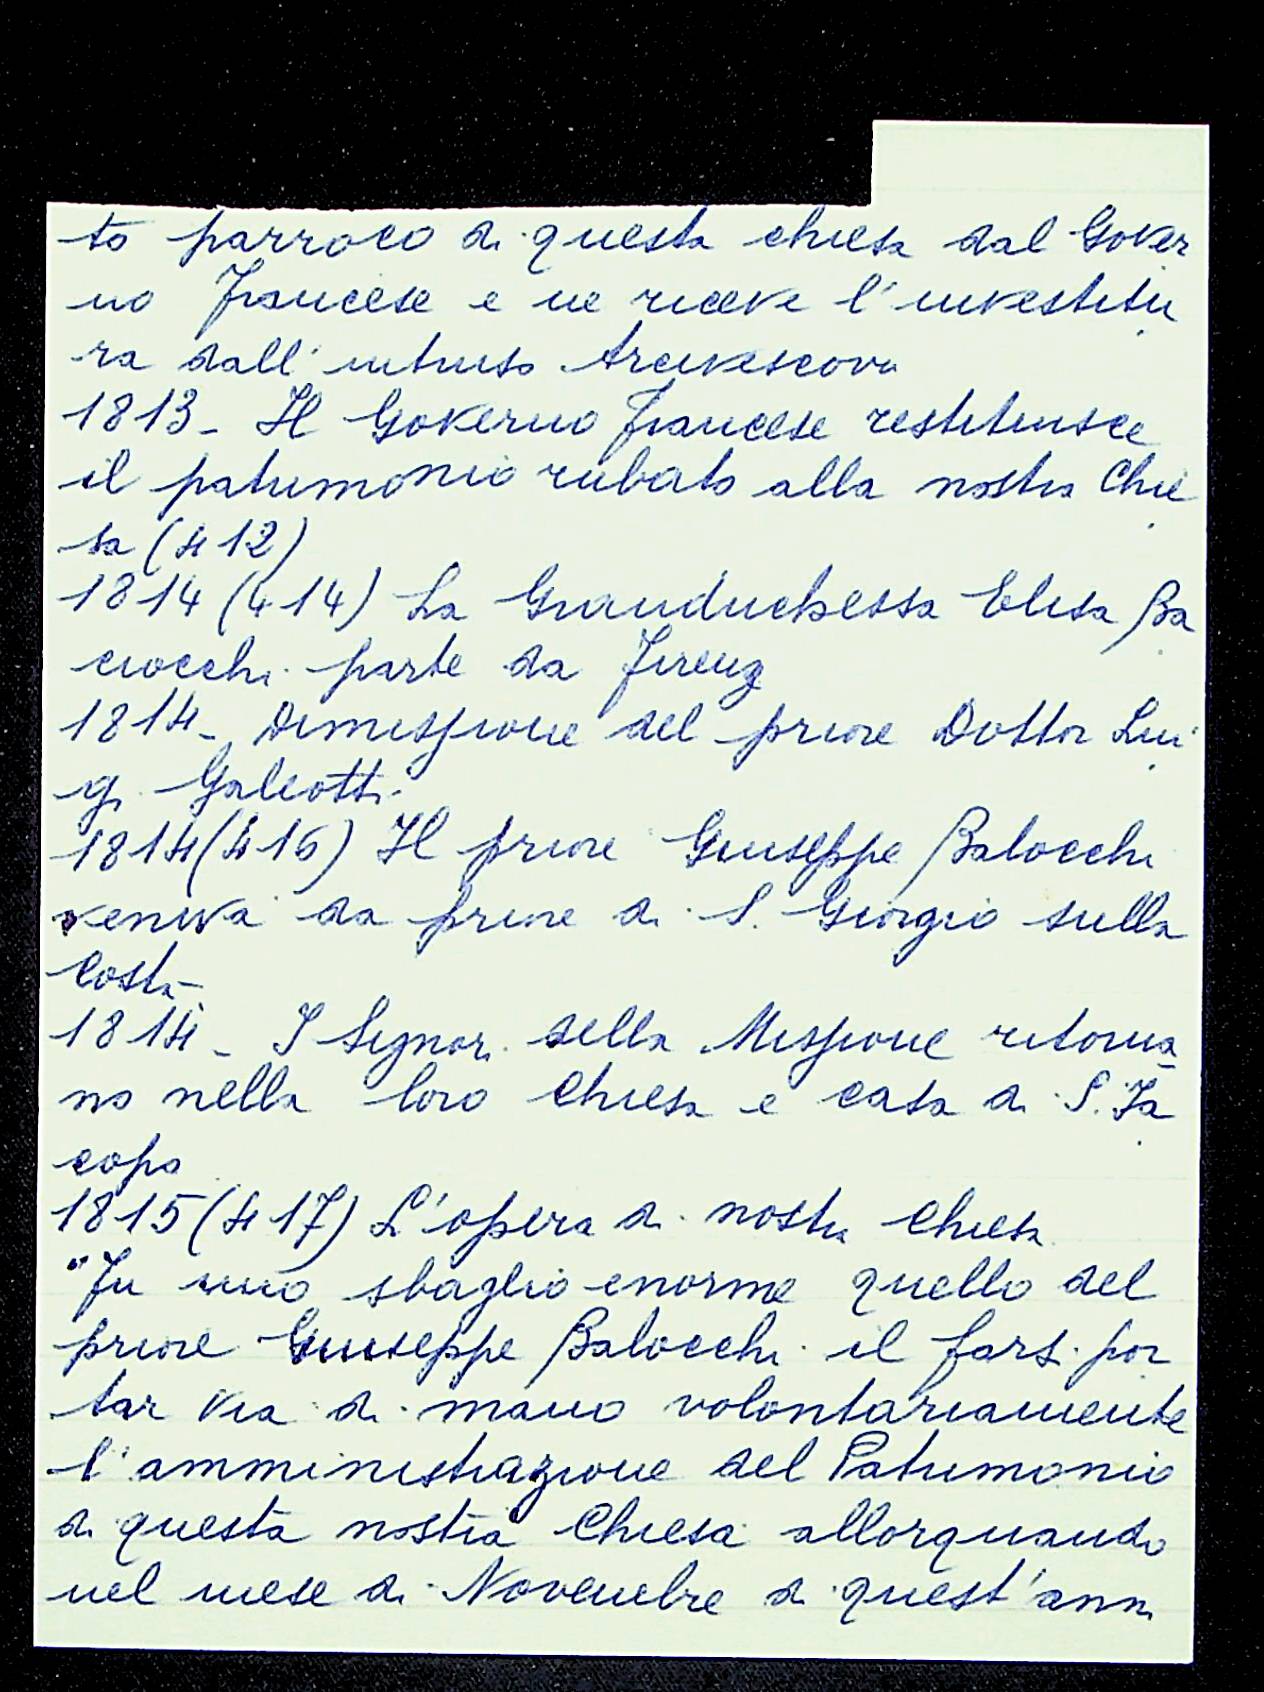 to parroco di questa chiesa dal Gover
no Francese e ne riceve l'investitu
ra dall'intruso Arcivescovo
1813 - Il Governo Francese restituisce
il patrimonio rubato alla nostra Chie
sa (412)
1814 (414) La Granduchessa Elisa Ba
ciocchi parte da Firenz
1814 - Dimissione del priore Dottor Lui
gi Galeotti
1814 (416) Il priore Giuseppe Balocchi
veniva da priore di S. Giorgio sulla
Costa
1814 - I Signori della Missione ritorna
no nella loro Chiesa e casa di S. Ja
copo
1815 (417) L'opera di nostra Chiesa
"Fu uno sbaglio enorme quello del
priore Giuseppe Balocchi il farsi por
tar via di mano volontariamente
l'amministrazione del Patrimonio
di questa nostra Chiesa allorquando
nel mese di Novembre di quest'anno